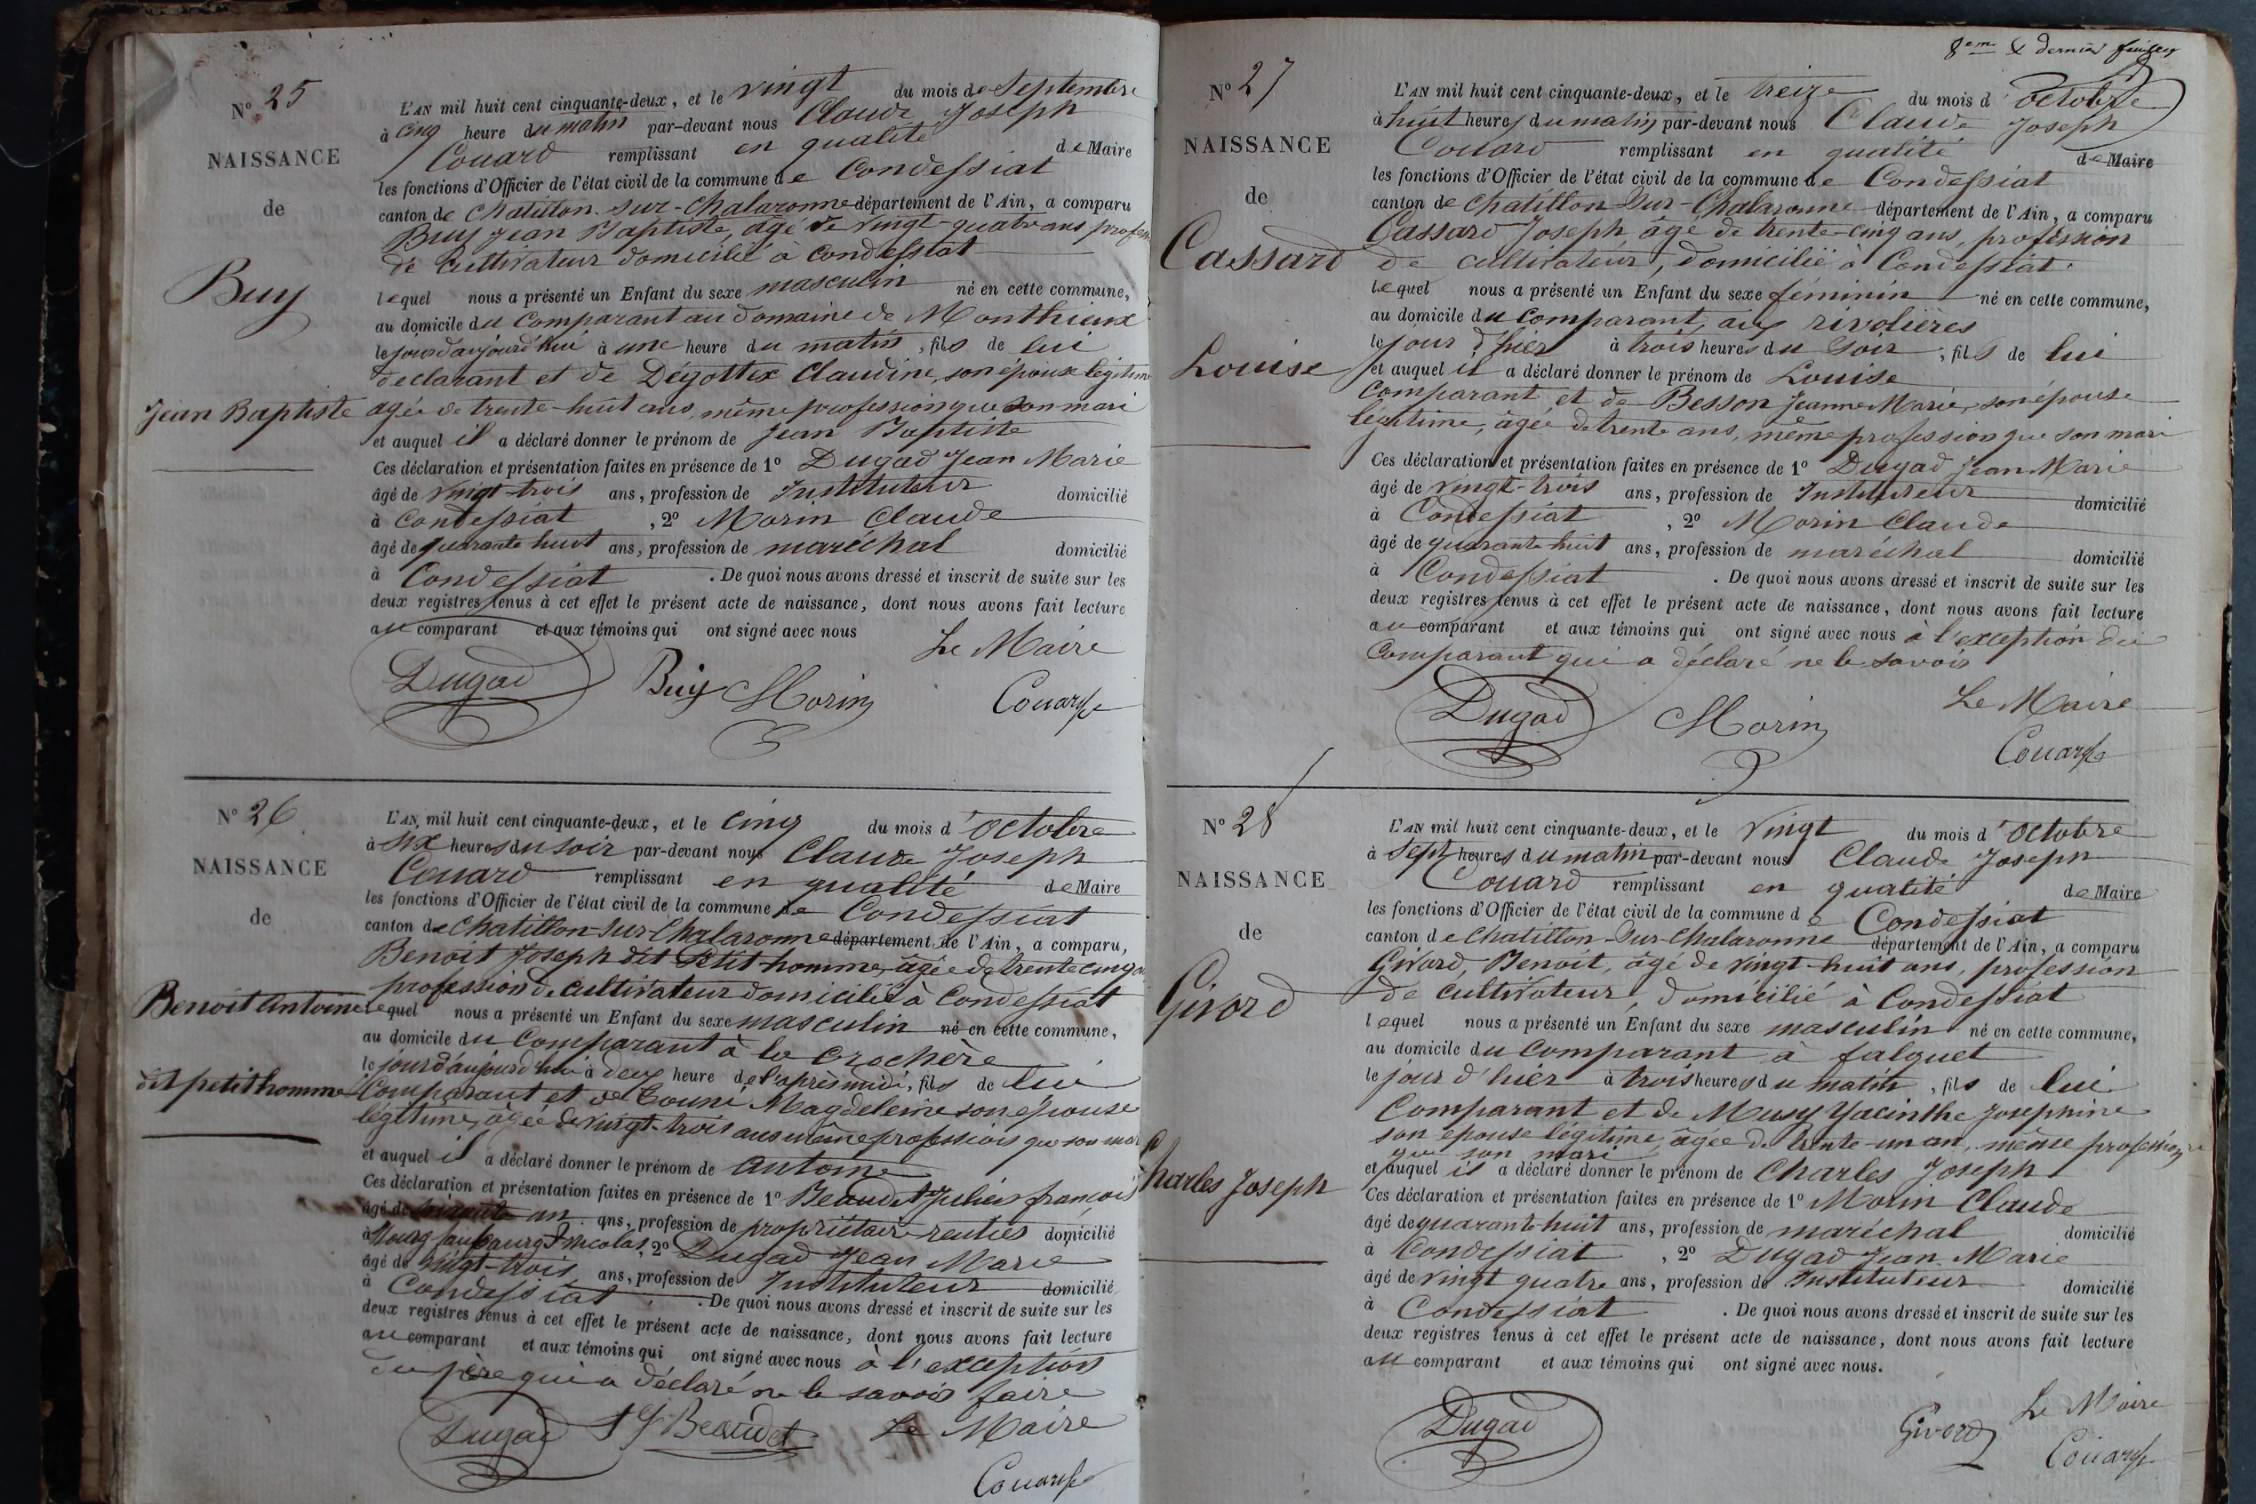 N° 25
NAISSANCE
de
Buy
Jean Baptiste
L'AN mil huit cent cinquante-deux, et le vingt du mois de Septembre
à cinq heure du matin par-devant nous Claude Joseph
Couard remplissant en qualité de Maire
les fonctions d'Officier de l'état civil de la commune de Condessiat
canton de Chatillon-sur-Chalaronne département de l'Ain, a comparu
Buy Jean Baptiste, agé de vingt-quatre ans profession
de cultivateur domicilié à Condessiat
lequel nous a présenté un Enfant du sexe masculin né en cette commune,
au domicile du comparant au domaine de Monthieux
le jour d'aujourd'hui à une heure du matin, fils de lui
declarant et de Degottex Claudine, son épouse légitime
agée de trente-huit ans, même profession que son mari
et auquel il a déclaré donner le prénom de Jean Baptiste
Ces déclaration et présentation faites en présence de 1° Dugad Jean Marie
âgé de vingt-trois ans, profession de Instituteur domicilié
à Condessiat, 2° Morin Claude
âgé de quarante huit ans, profession de maréchal domicilié
à Condessiat. De quoi nous avons dressé et inscrit de suite sur les
deux registres tenus à cet effet le présent acte de naissance, dont nous avons fait lecture
au comparant et aux témoins qui ont signé avec nous
Le Maire
Dugad Buy Morin Couard
N° 26
NAISSANCE
de
Benoit Antoine
dit petit homme
L'AN mil huit cent cinquante-deux, et le cinq du mois d'Octobre
à six heures du soir par-devant nous Claude Joseph
Couard remplissant en qualité de Maire
les fonctions d'Officier de l'état civil de la commune de Condessiat
canton de Chatillon-sur-Chalaronne département de l'Ain, a comparu,
Benoit Joseph dit Petit homme, âgée de trente cinq ans
profession de cultivateur domicilié à Condessiat
lequel nous a présenté un Enfant du sexe masculin né en cette commune,
au domicile du comparant à la Crochère
le jour d'aujourd'hui à deux heure de l'après midi, fils de lui
Comparant et de Magdeleine son épouse
légitime, âgée de vingt-trois ans même profession que son mari
et auquel il a déclaré donner le prénom de Antoine
Ces déclaration et présentation faites en présence de 1° Beaudet Julien françois
âgé de soixante un ans, profession de propriétaire rentier domicilié
à Bourg faubourg St Nicolas, 2° Dugad Jean Marie
âgé de vingt-trois ans, profession de Instituteur domicilié
à Condessiat. De quoi nous avons dressé et inscrit de suite sur les
deux registres tenus à cet effet le présent acte de naissance, dont nous avons fait lecture
au comparant et aux témoins qui ont signé avec nous à l'exception
du père qui a déclaré ne le savoir faire
Dugad Beaudet Le Maire
Couard
8eme & dernier feuillet
N° 27
NAISSANCE
de
Cassard
Louise
L'AN mil huit cent cinquante-deux, et le treize du mois d'octobre
à huit heures du matin par-devant nous Claude Joseph
Couard remplissant en qualité de Maire
les fonctions d'Officier de l'état civil de la commune de Condessiat
canton de Chatillon-sur-Chalaronne département de l'Ain, a comparu
Cassard Joseph âgé de trente-cinq ans, profession
de cultivateur, domicilié à Condessiat.
lequel nous a présenté un Enfant du sexe féminin né en cette commune,
au domicile du comparant, aux rivolières
le jour d'hier à trois heures du soir, fils de lui
et auquel il a déclaré donner le prénom de Louise
Comparant et de Besson Jeanne Marie, son épouse
légitime, âgée de trente ans, même profession que son mari
Ces déclaration et présentation faites en présence de 1° Dugad Jean Marie
âgé de vingt-trois ans, profession de Instituteur domicilié
à Condessiat, 2° Morin Claude
âgé de quarante-huit ans, profession de maréchal domicilié
à Condessiat. De quoi nous avons dressé et inscrit de suite sur les
deux registres tenus à cet effet le présent acte de naissance, dont nous avons fait lecture
au comparant et aux témoins qui ont signé avec nous à l'exception du
Comparant qui a déclaré ne le savoir
Le Maire
Dugad Morin Couard
N° 28
NAISSANCE
de
Givord
Charles Joseph
L'AN mil huit cent cinquante-deux, et le vingt du mois d'octobre
à sept heures du matin par-devant nous Claude Joseph
Couard remplissant en qualité de Maire
les fonctions d'Officier de l'état civil de la commune de Condessiat
canton de Chatillon-sur-Chalaronne département de l'Ain, a comparu
Givord, Benoit, âgé de vingt-huit ans, profession
de cultivateur, domicilié à Condessiat
lequel nous a présenté un Enfant du sexe masculin né en cette commune,
au domicile du comparant à falquet
le jour d'hier à trois heures du matin, fils de lui
Comparant et de Musy Yacinthe Josephine
son epouse légitime, âgée de trente-un an, même profession
que son mari
et auquel il a déclaré donner le prénom de Charles Joseph
Ces déclaration et présentation faites en présence de 1° Morin Claude
âgé de quarante huit ans, profession de maréchal domicilié
à Condessiat, 2° Dugad Jean Marie
âgé de vingt quatre ans, profession de Instituteur domicilié
à Condessiat. De quoi nous avons dressé et inscrit de suite sur les
deux registres tenus à cet effet le présent acte de naissance, dont nous avons fait lecture
au comparant et aux témoins qui ont signé avec nous.
Le Maire
Dugad Givord Couard